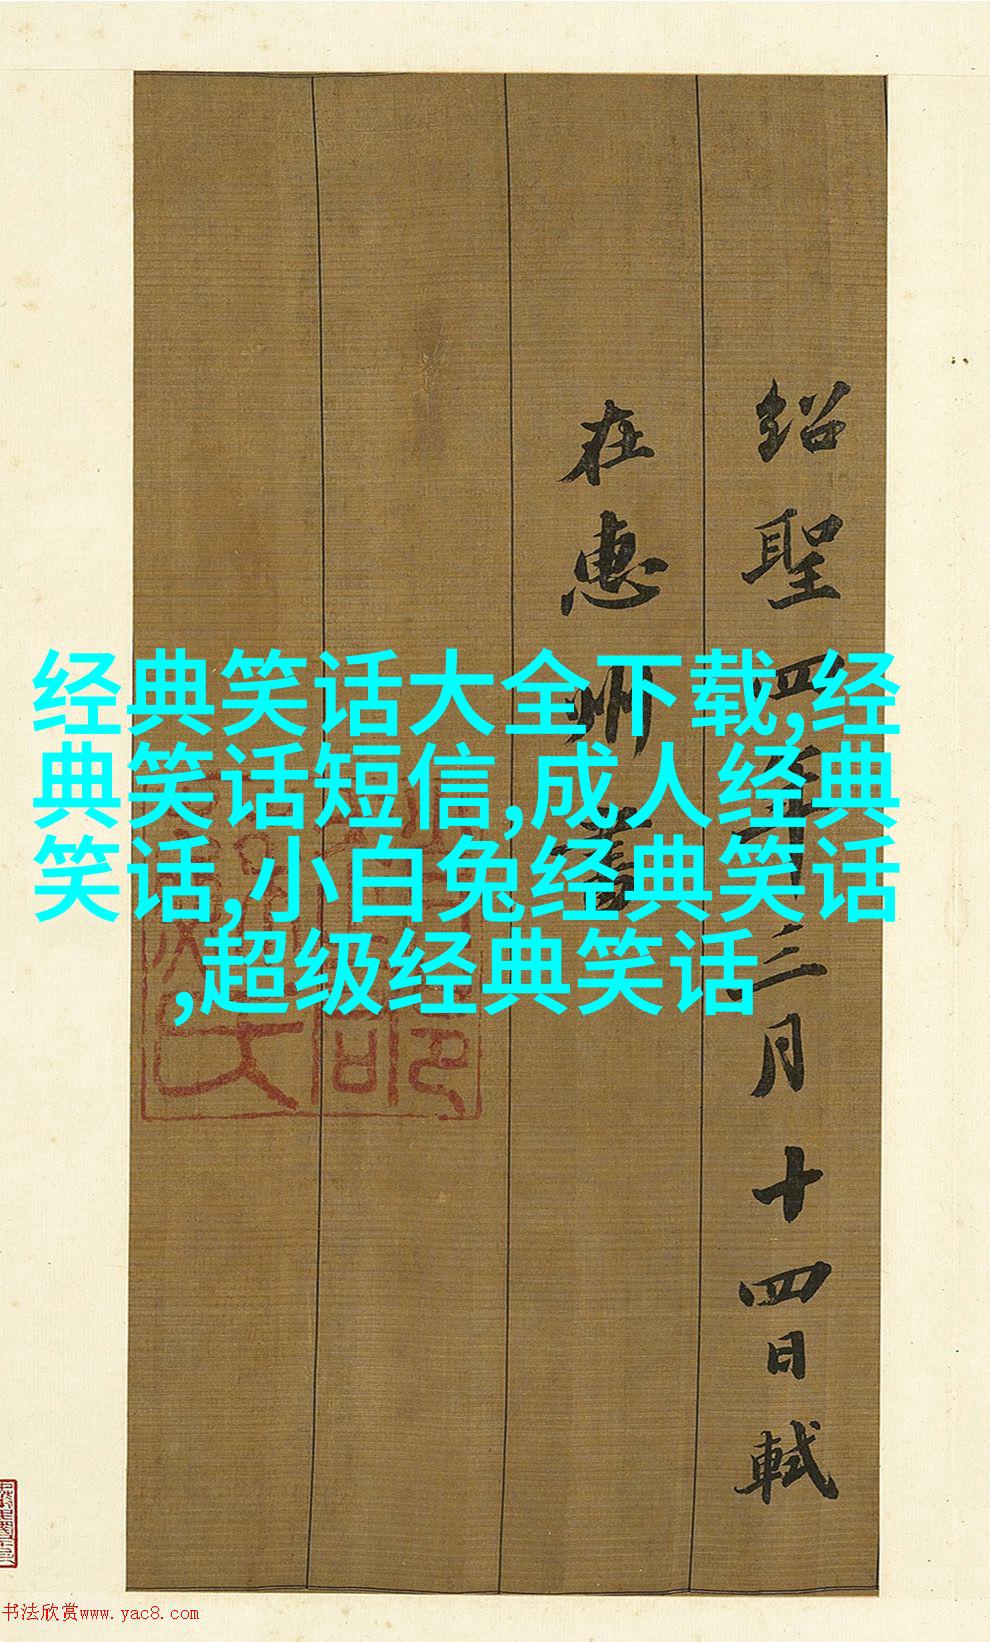 紹聖四年三月十四日軾
在惠州書
经典笑话大全下载,经
典笑话短信,成人经典
笑话,小白兔经典笑话
,超级经典笑话
书法欣赏www.yac8.com